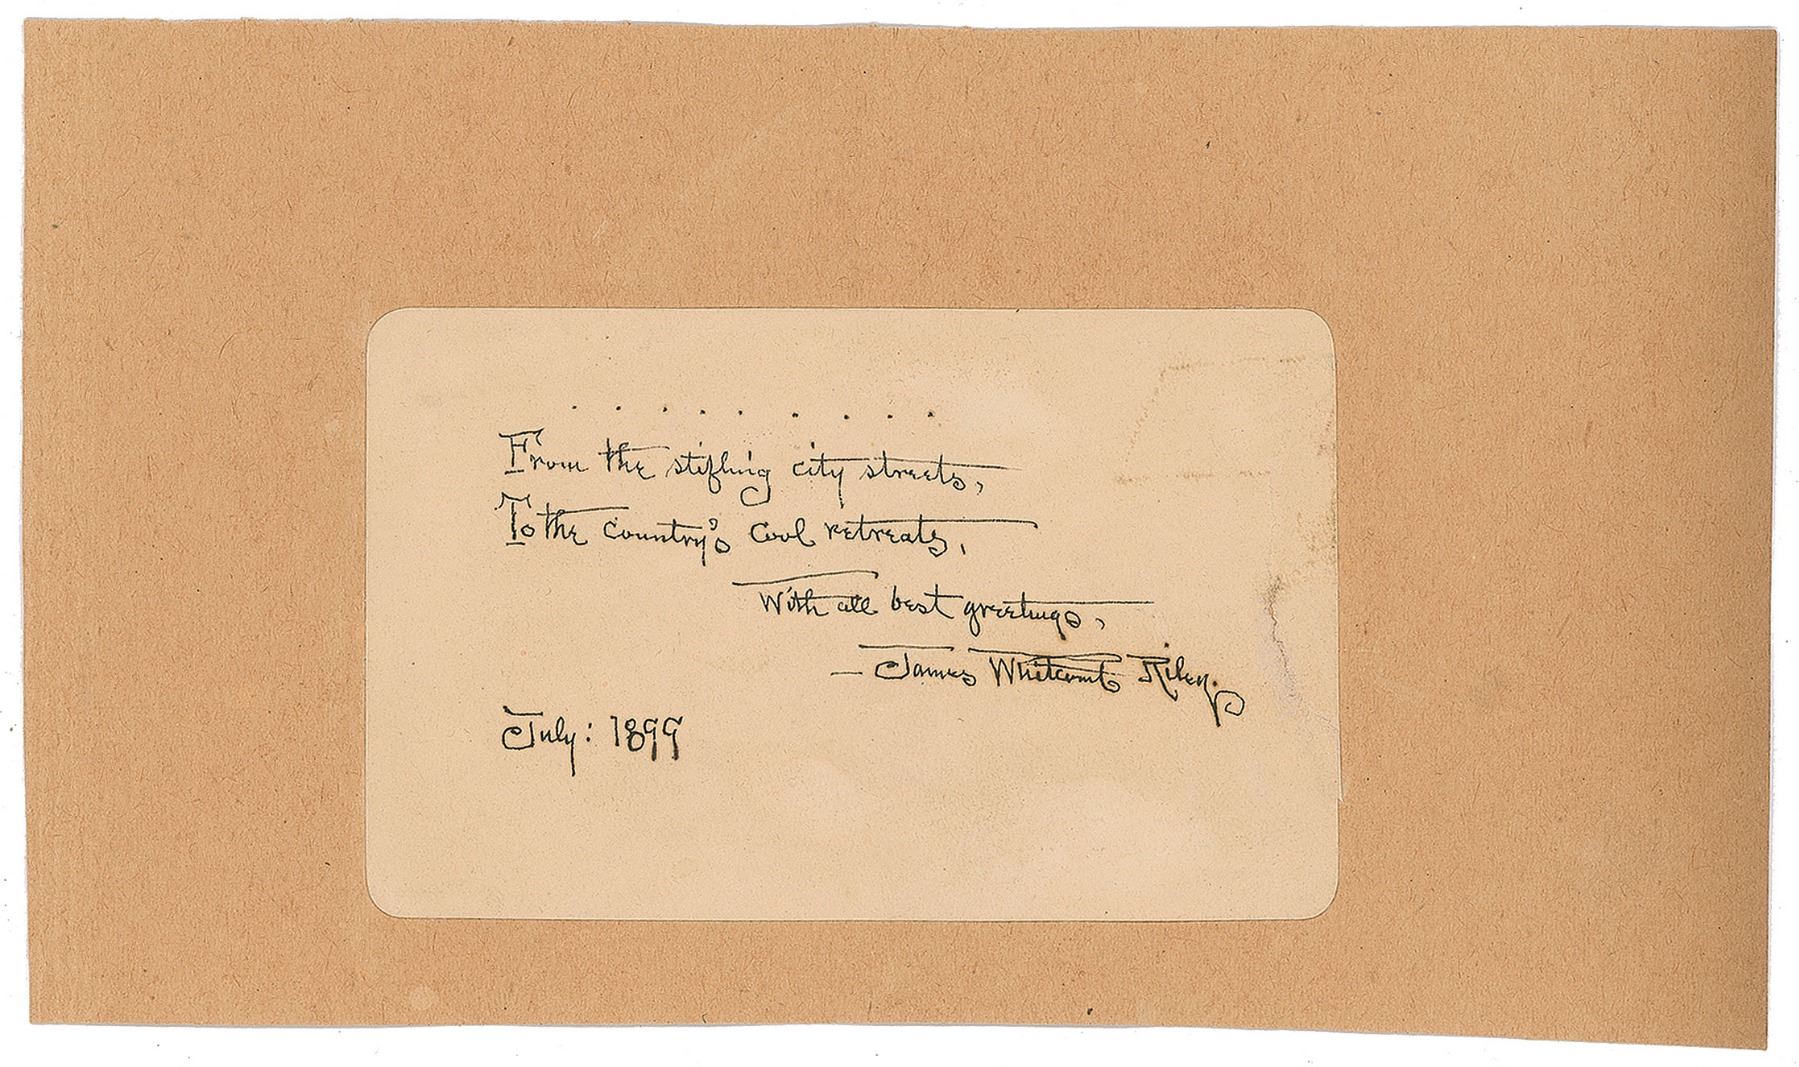 . . . . . . . . . .
From the stifling city streets,
To the country's cool retreats,
With all best greetings,
— James Whitcomb Riley.
July: 1899